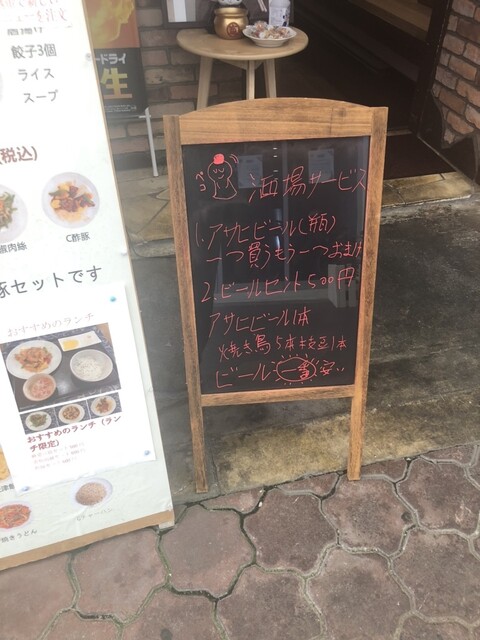 餃子3個
ライス
スープ
(税込)
C酢豚
豚セットです
おすすめのランチ
おすすめのランチ(ラン
チ限定)
焼きうどん
ドライ
生
ペコ
酒場サービス
1.アサヒビール(瓶)
一つ買うもう一つおまけ
2.ビールセット500円
アサヒビール1本
焼き鳥5本枝豆1本
ビール一番安い